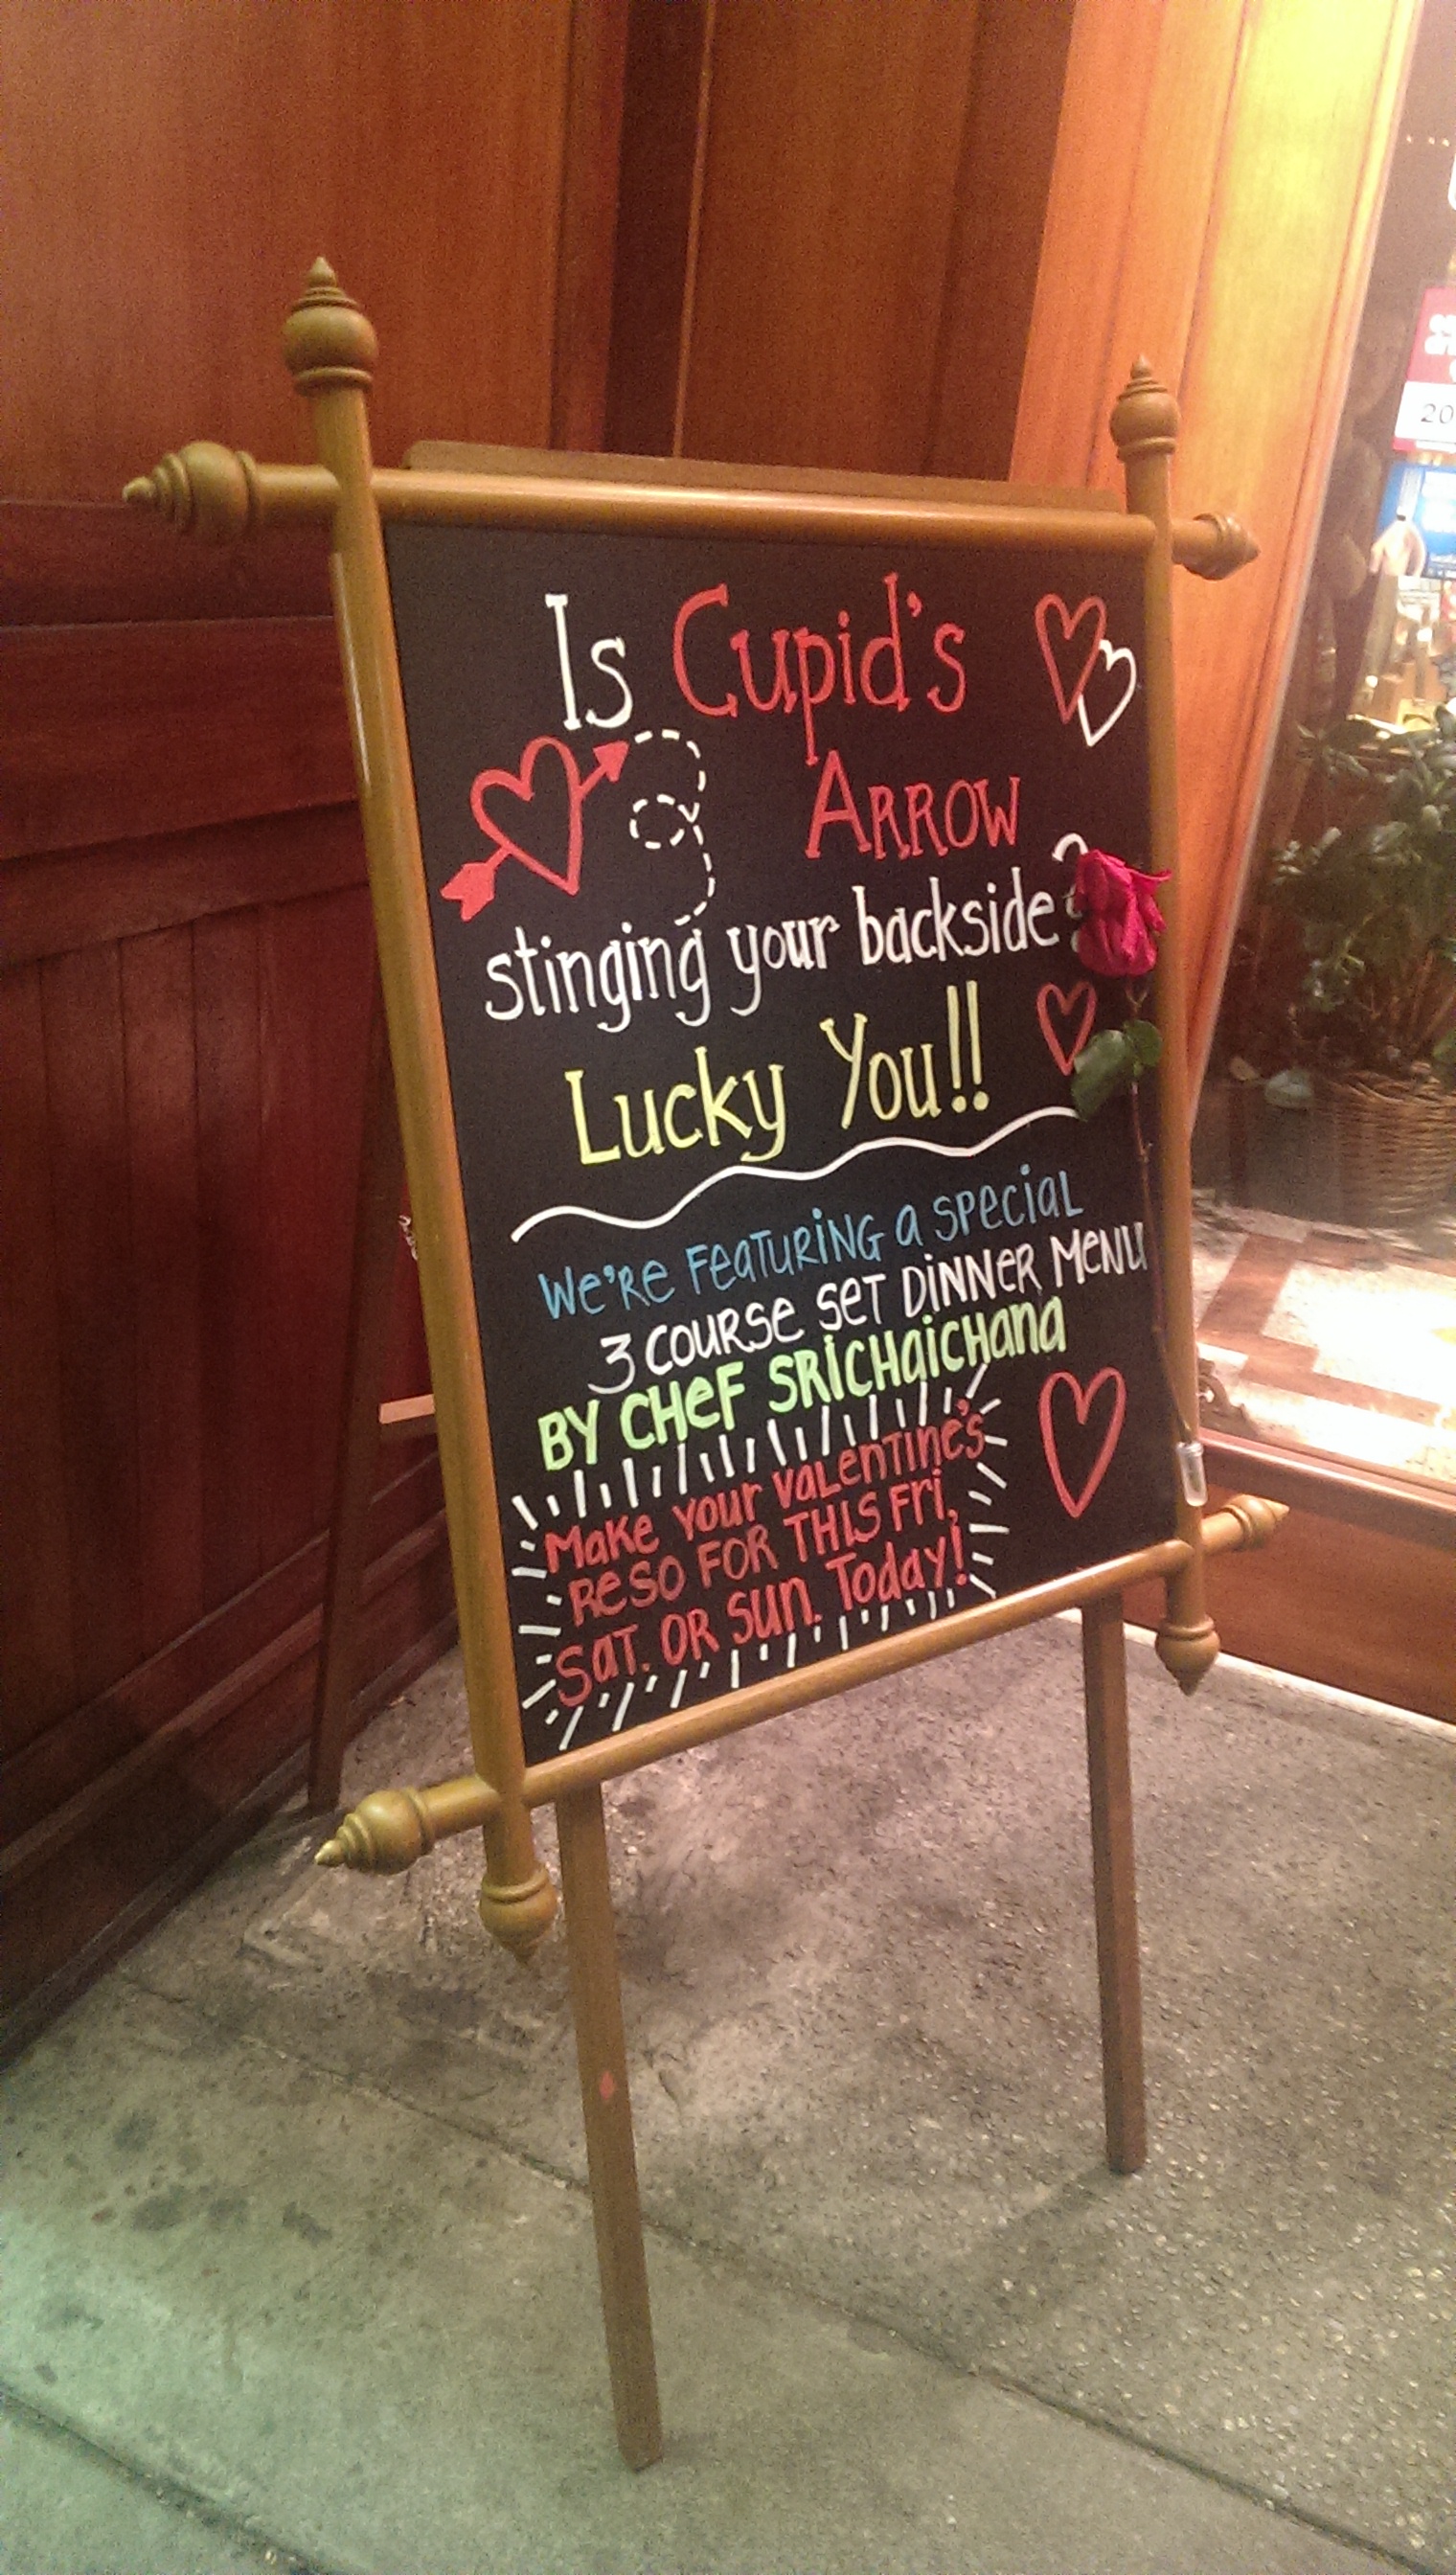 Is Cupid's
ARROW
stinging your backside?
Lucky You!!
We're FeaTURiNG a SPeciaL
3 COURSe SeT DiNNeR MeNU
BY CHeF SRiCHaiCHaNa
Make Your VaLeNTiNe's
ReSO FOR THIS FRi,
SaT. OR SUN. Today!
20